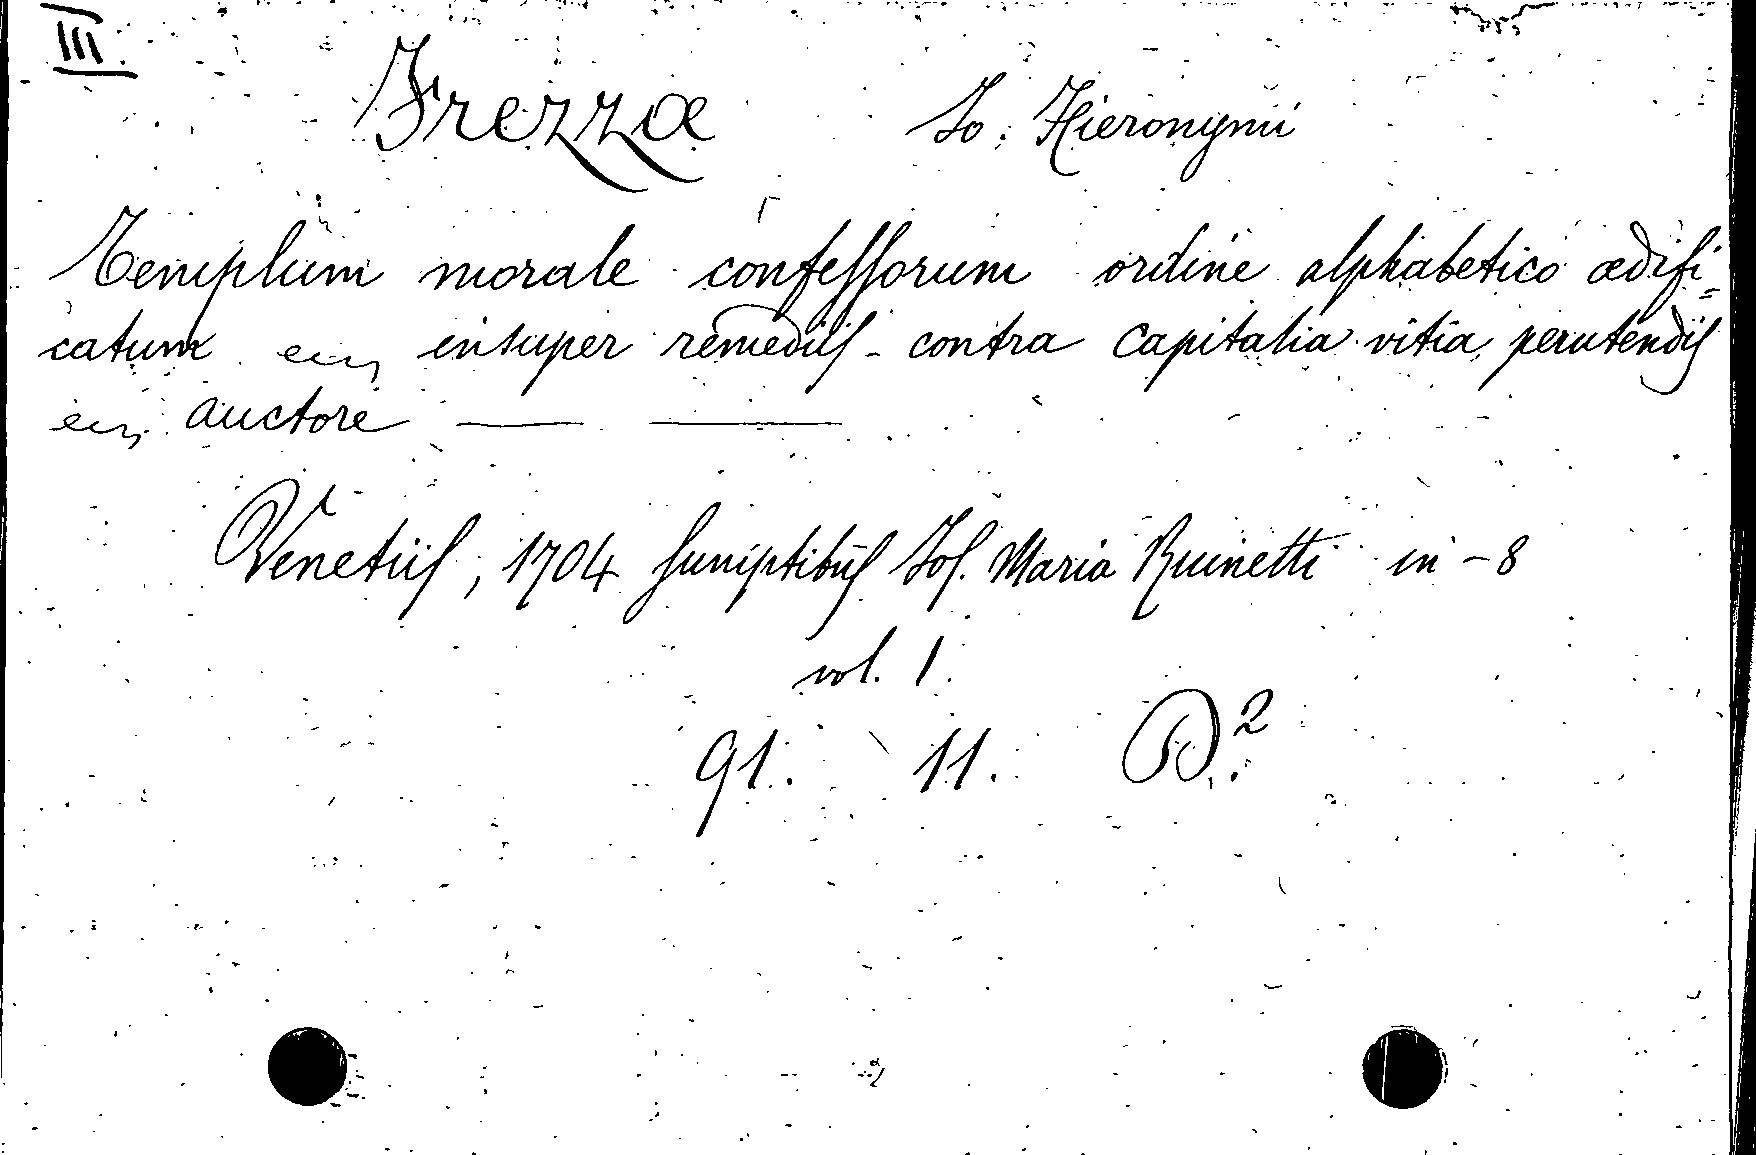 III
Frezza Jo. Hieronymi
Templum morale confessorum ordine alphabetico ædifi=
catum insuper remediis contra capitalia vitia perutendis
auctore — —
Venetiis, 1704 sumptibus Jos. Maria Ruinetti in-8
vol. 1.
91. 11. D.²